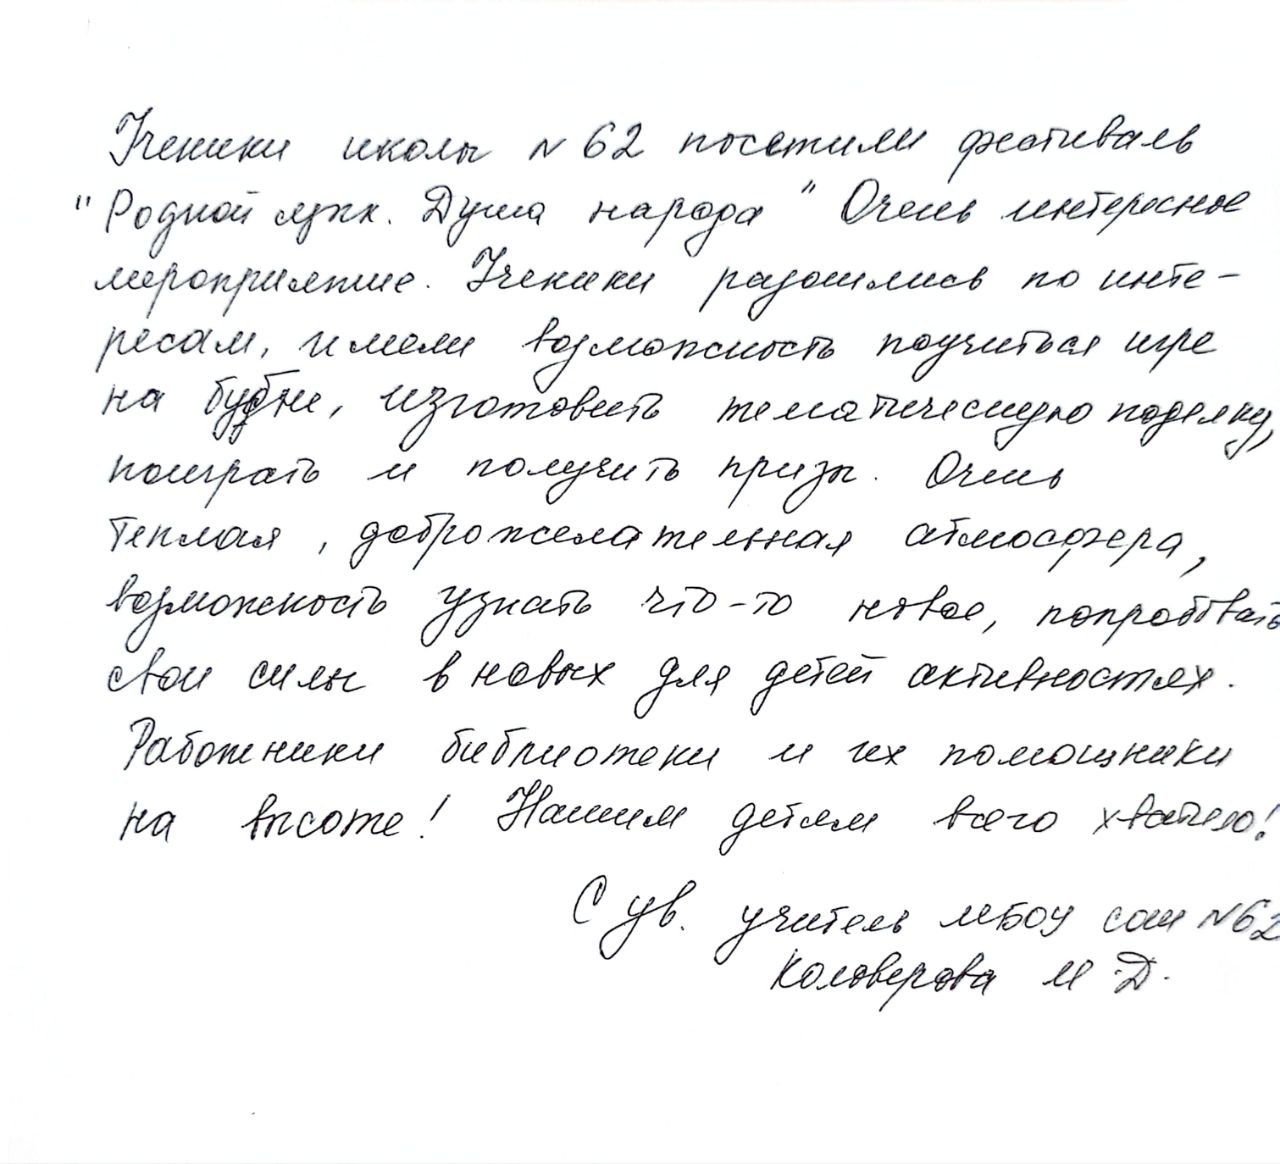 Ученики школы № 62 посетили фестиваль
"Родной язык. Душа народа" Очень интересное
мероприятие. Ученики разошлись по инте-
ресам, имели возможность поучиться игре
на бубне, изготовить тематическую поделку,
поиграть и получить призы. Очень
теплая, доброжелательная атмосфера,
возможность узнать что-то новое, попробовать
свои силы в новых для детей активностях.
Работники библиотеки и их помощники
на высоте! Нашим детям всего хватило!
С ув. учитель МБОУ сош №62
Коловерова М.Д.